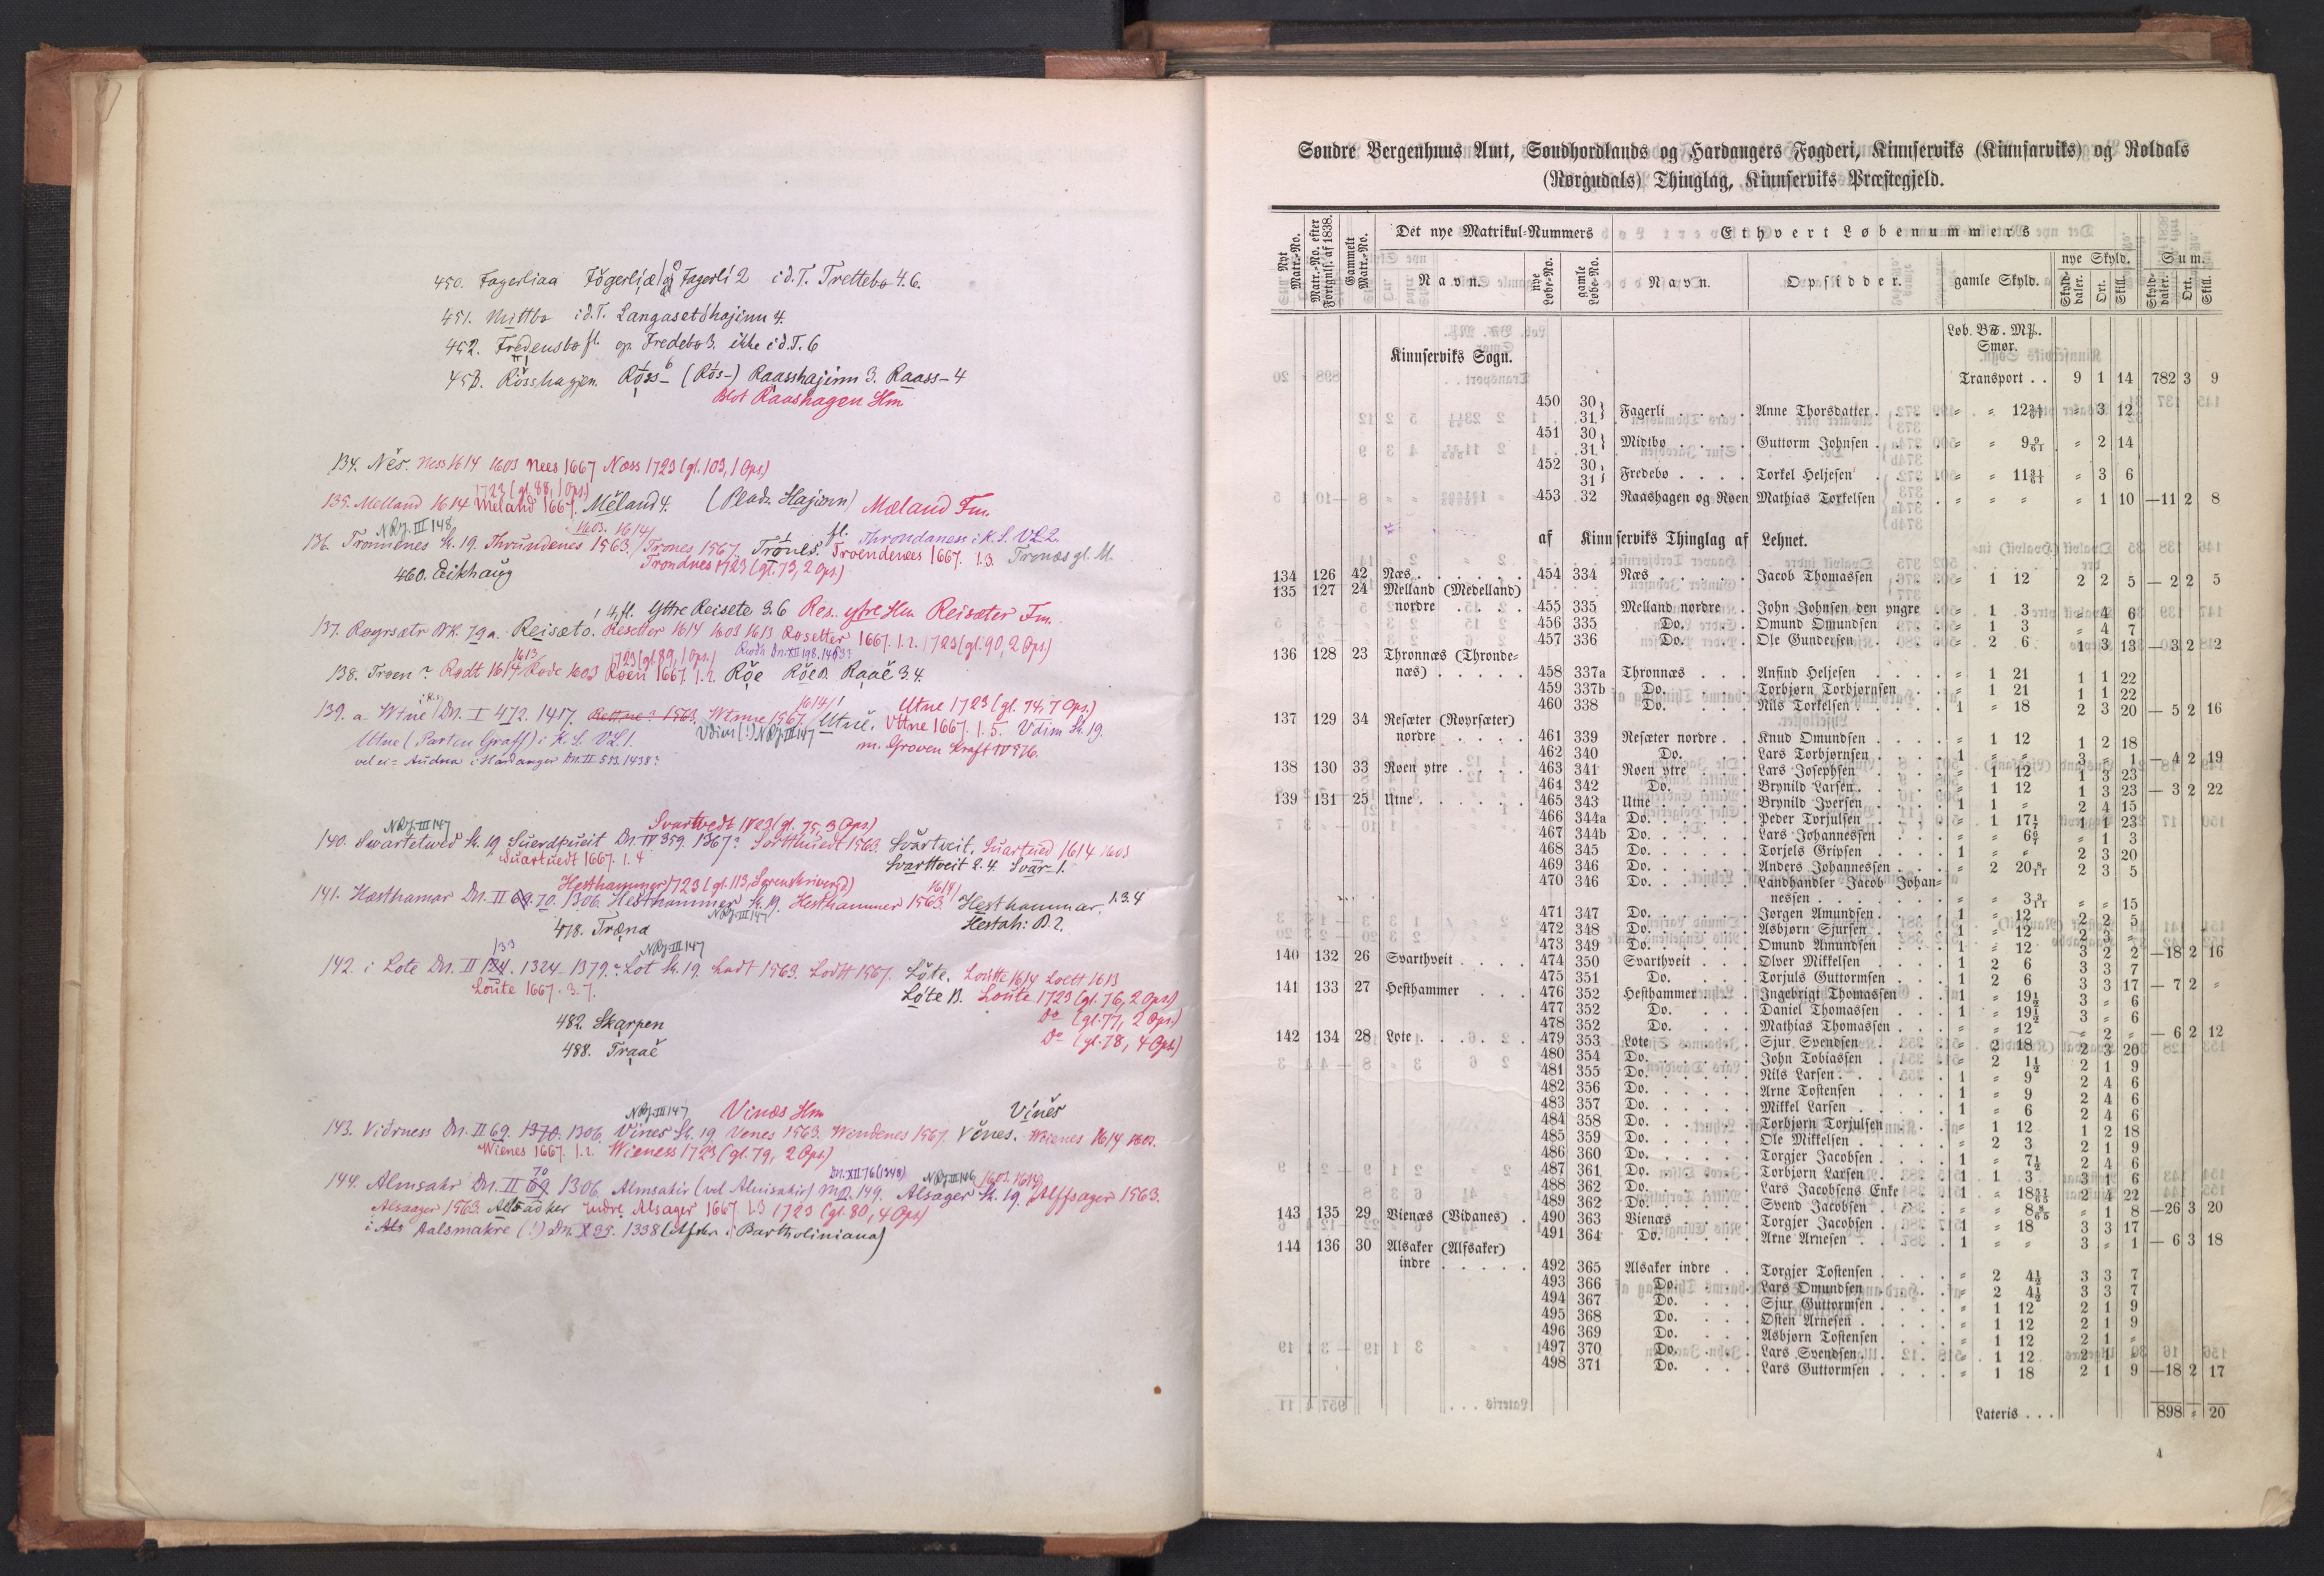 450. Fagerliaa Fögerliæ/og Fagerli 2 i d.T. Trettebo 4.6.
451. Mittbo i d.T. Langasetshajinn 4.
452. Fredensbo fl. op. Fredebo 3. ikke i d.T. 6
453. Rösshagjen. Röss- (Rös-) Raasshajinn 3. Raass-4
Blot Raashagen Hm
134. Nes. Ness 1614 1603 Nees 1667 Næss 1723 (gl. 103, 1 Ops)
1723 (gl. 88, 1 Ops)
135. Melland 1614 Meland 1667. Meland 4. (Plads Hajinn) Mæland Fm.
NRJ. III 148 1603. 1614/
136. Tronnenes St. 19. Thrundenes 1563. Trones 1567. Trones. fl. Throndaness i K.S. VL2.
Troendenees 1667. 1.3. Tronæs gl. M.
Trondnes 1723 (gl. 73, 2 Ops.)
460. Eikhaug
Yttre Reisete 3.6 Res. ytre Hm Reisæter Fm.
137. Røyrsætr BK. 79a. Reisæto. Resetter 1614 1603 1613 Rosetter 1667. 1.2. 1723 (gl. 90, 2 Ops.)
1613 1723 (gl. 89, 1 Ops.)
138. Troen? Rodt 1614/Rode 1603 Roen 1667. 1.2. Röe Röen Raae 3.4.
139. a Wtne Dn. I 472. 1417. Wtnne 1567. 1614/1 Utne. Utne 1723 (gl. 74, 7 Ops.)
Uttne 1667. 1.5. Vdim St. 19.
Vdim (!) NRJ III 147
Utne (Parten Graff) i K.S. VL 1. m. Groven Kraft IV 976.
vel ei = Audna i Hardanger Dn. II 513. 1438?
NRJ. III 147 Svartvedt 1723 (gl. 75, 3 Ops)
140. Swartetwed St. 19 Suerdtueit Dn. IV 359. 1367? Sortthuedt 1563. Svartveit. Suartued 1614 1603
Suartuedt 1667. 1.4 Svarttveit 2.4. Svär-1.
Hesthammer 1723 (gl. 113, Sorenskrivergd)
141. Hæsthamar Dn. II 70. 1306. Hesthammer St. 19. Hesthammer 1563. 1614/ Hesthammar. 1.3.4
NRJ-III 147
478. Træna Hestah: B. 2.
133 NRJ-III 147
142. i Lote Dn. II 124. 1324. 1379? Lot St. 19. Lodt 1563. Lodtt 1567. Löte. Lodtte 1614 Loett 1613
Loute 1667. 3.7. Löte B. Loute 1723 (gl. 76, 2 Ops)
Do (gl. 77, 2 Ops.)
482. Skarpen Do (gl. 78, 4 Ops)
488. Traae
NRJ-III 147 Vinæs Hm Vines
143. Vidrness Dn. II 69. 1306. Vines St. 19 Venes 1563. Windenes 1567. Vines. Weenes 1614 1603.
Wienes 1667. 1.2. Wieness 1723 (gl. 79, 2 Ops)
70 Dn. XII 76 (1348) NRJ-III 146 1603. 1614/
144. Almsakr Dn. II 69 1306. Almsakir (vel Alsisakir) 149. Alsager St. 19. Alffsager 1563.
Alsaager 1563. Alsadker Indre Alsager 1667. 1.3 1723 (gl. 80, 4 Ops)
i Als Aalsmakre (!) Dn. X 35. 1338 (Afskr. i Bartholiniana)
Søndre Bergenhuus Amt, Søndhordlands og Hardangers Fogderi, Kinnserviks (Kinnsarviks) og Røldals
(Rørgudals) Thinglag, Kinnserviks Præstegjeld.
Nyt Matr.-No.
Matr.-No. efter Fortgnls. af 1838.
Gammelt Matr.-No.
Det nye Matrikul-Nummers
Ethvert Løbenummers
Navn. nye Løbe-No. gamle Løbe-No. Navn. Opsidder. gamle Skyld. nye Skyld. Sum.
Skylddaler. Ort. Skill. Skylddaler. Ort. Skill.
Løb. B℔. M℔.
Smør.
Kinnserviks Sogn.
Transport . . 9 1 14 782 3 9
450 30, 31 Fagerli Anne Thorsdatter " " 12 31/61 " 3 12
451 30, 31 Midtbø Guttorm Johnsen " " 9 9/61 " 2 14
452 30, 31 Fredebø Torkel Heljesen " " 11 21/61 " 3 6
453 32 Raashagen og Røen Mathias Torkelsen " " " " 1 10 —11 2 8
af Kinnserviks Thinglag af Lehnet.
134 126 42 Næs 454 334 Næs Jacob Thomassen " 1 12 2 2 5 — 2 2 5
135 127 24 Melland (Medelland)
nordre 455 335 Melland nordre John Johnsen den yngre " 1 3 " 4 6
456 335 Do. Omund Omundsen " 1 3 " 4 7
457 336 Do. Ole Gundersen " 2 6 1 3 13 — 3 2 2
136 128 23 Thronnæs (Throndenæs) 458 337a Thronnæs Anfind Heljesen " 1 21 1 1 22
459 337b Do. Torbjørn Torbjørnsen " 1 21 1 1 22
460 338 Do. Nils Torkelsen 1 " 18 2 3 20 — 5 2 16
137 129 34 Resæter (Røyrsæter)
nordre 461 339 Resæter nordre Knud Omundsen " 1 12 1 2 18
462 340 Do. Lars Torbjørnsen 1 " " 3 " 1 — 4 2 19
138 130 33 Røen ytre 463 341 Røen ytre Lars Josephsen " 1 12 1 3 23
464 342 Do. Brynild Larsen " 1 12 1 3 23 — 3 2 22
139 131 25 Utne 465 343 Utne Brynild Iversen 1 1 " 2 4 15
466 344a Do. Peder Torjulsen " 1 17 1/7 1 1 23
467 344b Do. Lars Johannessen " " 6 6/7 " 1 3
468 345 Do. Torjels Gripsen 1 " " 2 3 20
469 346 Do. Anders Johannessen " 2 20 8/11 2 3 5
470 346 Do. Landhandler Jacob Johannessen " " 3 3/11 " " 15
471 347 Do. Jørgen Amundsen 1 " 12 2 2 5
472 348 Do. Asbjørn Sjursen 1 " 12 2 3 "
473 349 Do. Omund Amundsen 1 " 12 3 2 2 —18 2 16
140 132 26 Svarthveit 474 350 Svarthveit Olver Mikkelsen 1 2 6 3 3 7
475 351 Do. Torjuls Guttormsen 1 2 6 3 3 17 — 7 2 "
141 133 27 Hesthammer 476 352 Hesthammer Ingebrigt Thomassen 1 " 19 1/2 3 " 6
477 352 Do. Daniel Thomassen 1 " 19 1/2 3 " 6
478 352 Do. Mathias Thomassen " " 12 " 2 " — 6 2 12
142 134 28 Lote 479 353 Lote Sjur Svendsen " 2 18 2 3 20
480 354 Do. John Tobiassen " 2 1 1/2 2 1 9
481 355 Do. Nils Larsen 1 " 9 2 4 6
482 356 Do. Arne Tostensen 1 " 9 2 4 6
483 357 Do. Mikkel Larsen 1 " 6 2 4 6
484 358 Do. Torbjørn Torjulsen " 1 12 1 2 18
485 359 Do. Ole Mikkelsen " 2 3 2 1 9
486 360 Do. Torgjer Jacobsen 1 " 7 1/2 2 4 6
487 361 Do. Torbjørn Larsen 1 1 3 3 1 6
488 362 Do. Lars Jacobsens Enke 1 " 18 51/65 2 4 22
489 362 Do. Svend Jacobsen " " 8 8/65 " 1 8 —26 3 20
143 135 29 Vienæs (Vidanes) 490 363 Vienæs Torgjer Jacobsen 1 " 18 3 3 17
491 364 Do. Arne Arnesen 1 " " 3 " 1 — 6 3 18
144 136 30 Alsaker (Alfsaker)
indre 492 365 Alsaker indre Torgjer Tostensen " 2 4 1/2 3 3 7
493 366 Do. Lars Omundsen " 2 4 1/2 3 3 7
494 367 Do. Sjur Guttormsen " 1 12 2 1 9
495 368 Do. Osten Arnesen " 1 12 2 1 9
496 369 Do. Asbjørn Tostensen " 1 12 2 1 "
497 370 Do. Lars Svendsen " 1 12 2 1 "
498 371 Do. Lars Guttormsen " 1 18 2 1 9 —18 2 17
Lateris . . . 898 " 20
4